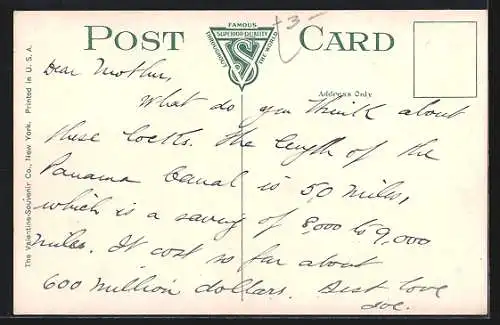 FAMOUS
SUPERIOR QUALITY
THROUGHOUT THE WORLD
VS
POST CARD
3 —
Address Only
The Valentine-Souvenir Co., New York. Printed in U. S. A.
Dear Mother,
What do you think about
these locks. The length of the
Panama Canal is 50 miles,
which is a saving of 8,000 to 9,000
miles. It cost so far about
600 million dollars. Best love
Joe.